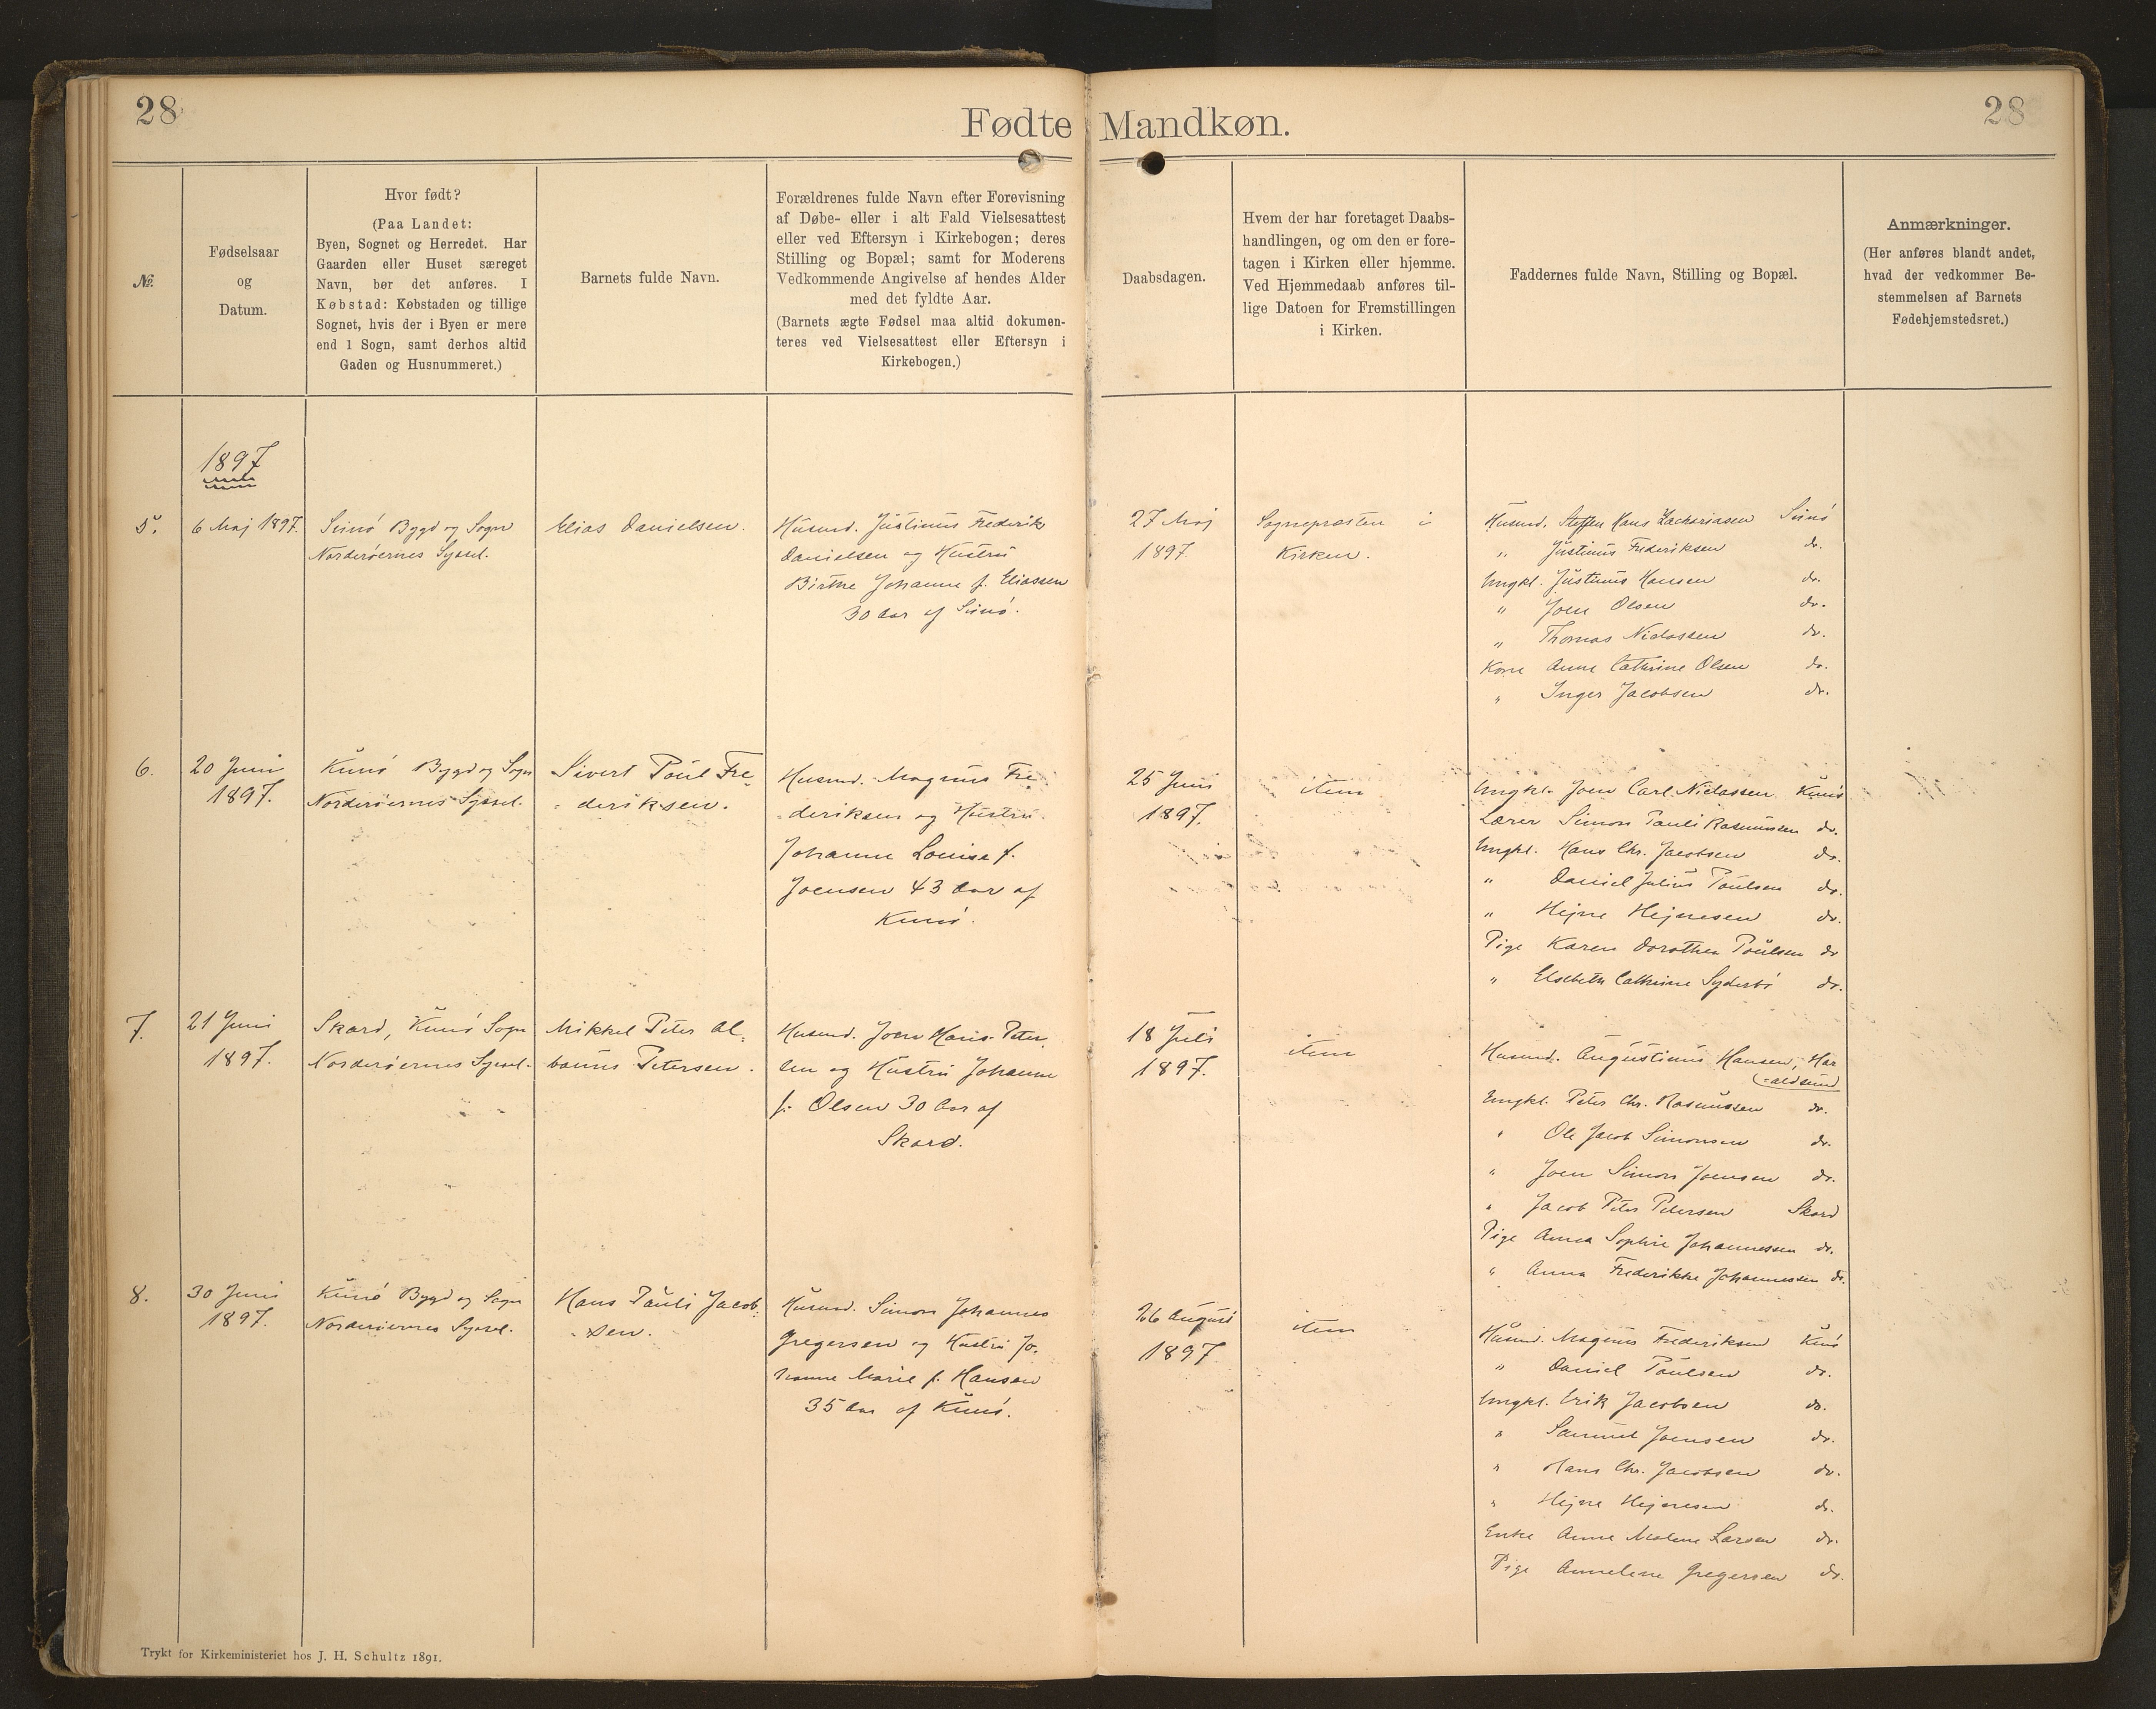 28
Fødte Mandkøn.
28
№
Fødselsaar
og
Datum.
Hvor født?
(Paa Landet:
Byen, Sognet og Herredet. Har
Gaarden eller Huset særeget
Navn, bør det anføres. I
Købstad: Købstaden og tillige
Sognet, hvis der i Byen er mere
end 1 Sogn, samt derhos altid
Gaden og Husnummeret.)
Barnets fulde Navn.
Forældrenes fulde Navn efter Forevisning
af Døbe- eller i alt Fald Vielsesattest
eller ved Eftersyn i Kirkebogen; deres
Stilling og Bopæl; samt for Moderens
Vedkommende Angivelse af hendes Alder
med det fyldte Aar.
(Barnets ægte Fødsel maa altid dokumen-
teres ved Vielsesattest eller Eftersyn i
Kirkebogen.)
Daabsdagen.
Hvem der har foretaget Daabs-
handlingen, og om den er fore-
tagen i Kirken eller hjemme.
Ved Hjemmedaab anføres til-
lige Datoen for Fremstillingen
i Kirken.
Faddernes fulde Navn, Stilling og Bopæl.
Anmærkninger.
(Her anføres blandt andet,
hvad der vedkommer Be-
stemmelsen af Barnets
Fødehjemstedsret.)
1897
5.
6 Maj 1897.
Svinö Bygd og Sogn
Norderöernes Syssel.
Elias Danielsen.
Husmd. Justinus Frederik
Danielsen og Hustru
Birthe Johanne f. Eliassen
30 Aar af Svinö.
27 Maj
1897
Sognepræsten i
Kirken.
Husmd. Steffen Hans Zachariasen Svinö
" Justinus Frederiksen do.
Ungkl. Justinus Hansen do.
" Joen Olsen do.
" Thomas Niclassen do.
Kone Anne Cathrine Olsen do.
" Inger Jacobsen do.
6.
20 Juni
1897.
Kunö Bygd og Sogn
Norderöernes Syssel.
Sivert Poul Fre-
deriksen.
Husmd. Magnus Fre-
deriksen og Hustru
Johanne Louise f.
Joensen 43 Aar af
Kunö.
25 Juni
1897.
item
Ungkl. Joen Carl Niclassen Kunö
Lærer Simon Pauli Rasmussen do.
Ungkl. Hans Chr. Jacobsen do.
" Daniel Julius Poulsen do.
" Hejne Hejnesen do.
Pige Karen Dorothea Poulsen do
" Elsebeth Cathrine Syderbö do.
7.
21 Juni
1897.
Skard, Kunö Sogn
Norderöernes Syssel.
Mikkel Peter Al-
banus Petersen.
Husmd. Joen Hans Peter-
sen og Hustru Johanne
f. Olsen 30 Aar af
Skard.
18 Juli
1897.
item
Husmd. Augustinus Hansen, Har
aldsund
Ungkl. Peter Chr. Rasmussen do.
" Ole Jacob Simonsen do.
" Joen Simon Joensen do.
" Jacob Peter Petersen Skard
Pige Anna Sophie Johannessen do.
" Anna Frederikke Johannessen do.
8.
30 Juni
1897.
Kunö Bygd og Sogn
Norderöernes Syssel.
Hans Pauli Jacob-
sen.
Husmd. Simon Johannes
Gregersen og Hustru Jo-
hanne Marie f. Hansen
35 Aar af Kunö.
26 August
1897
item
Husmd. Magnus Frederiksen Kunö
" Daniel Poulsen do.
Ungkl. Erik Jacobsen do.
" Samuel Joensen do.
" Hans Chr. Jacobsen do.
" Hejne Hejnesen do.
Enke Anne Malene Larsen do.
Pige Annelene Gregersen do.
Trykt for Kirkeministeriet hos J. H. Schultz 1891.